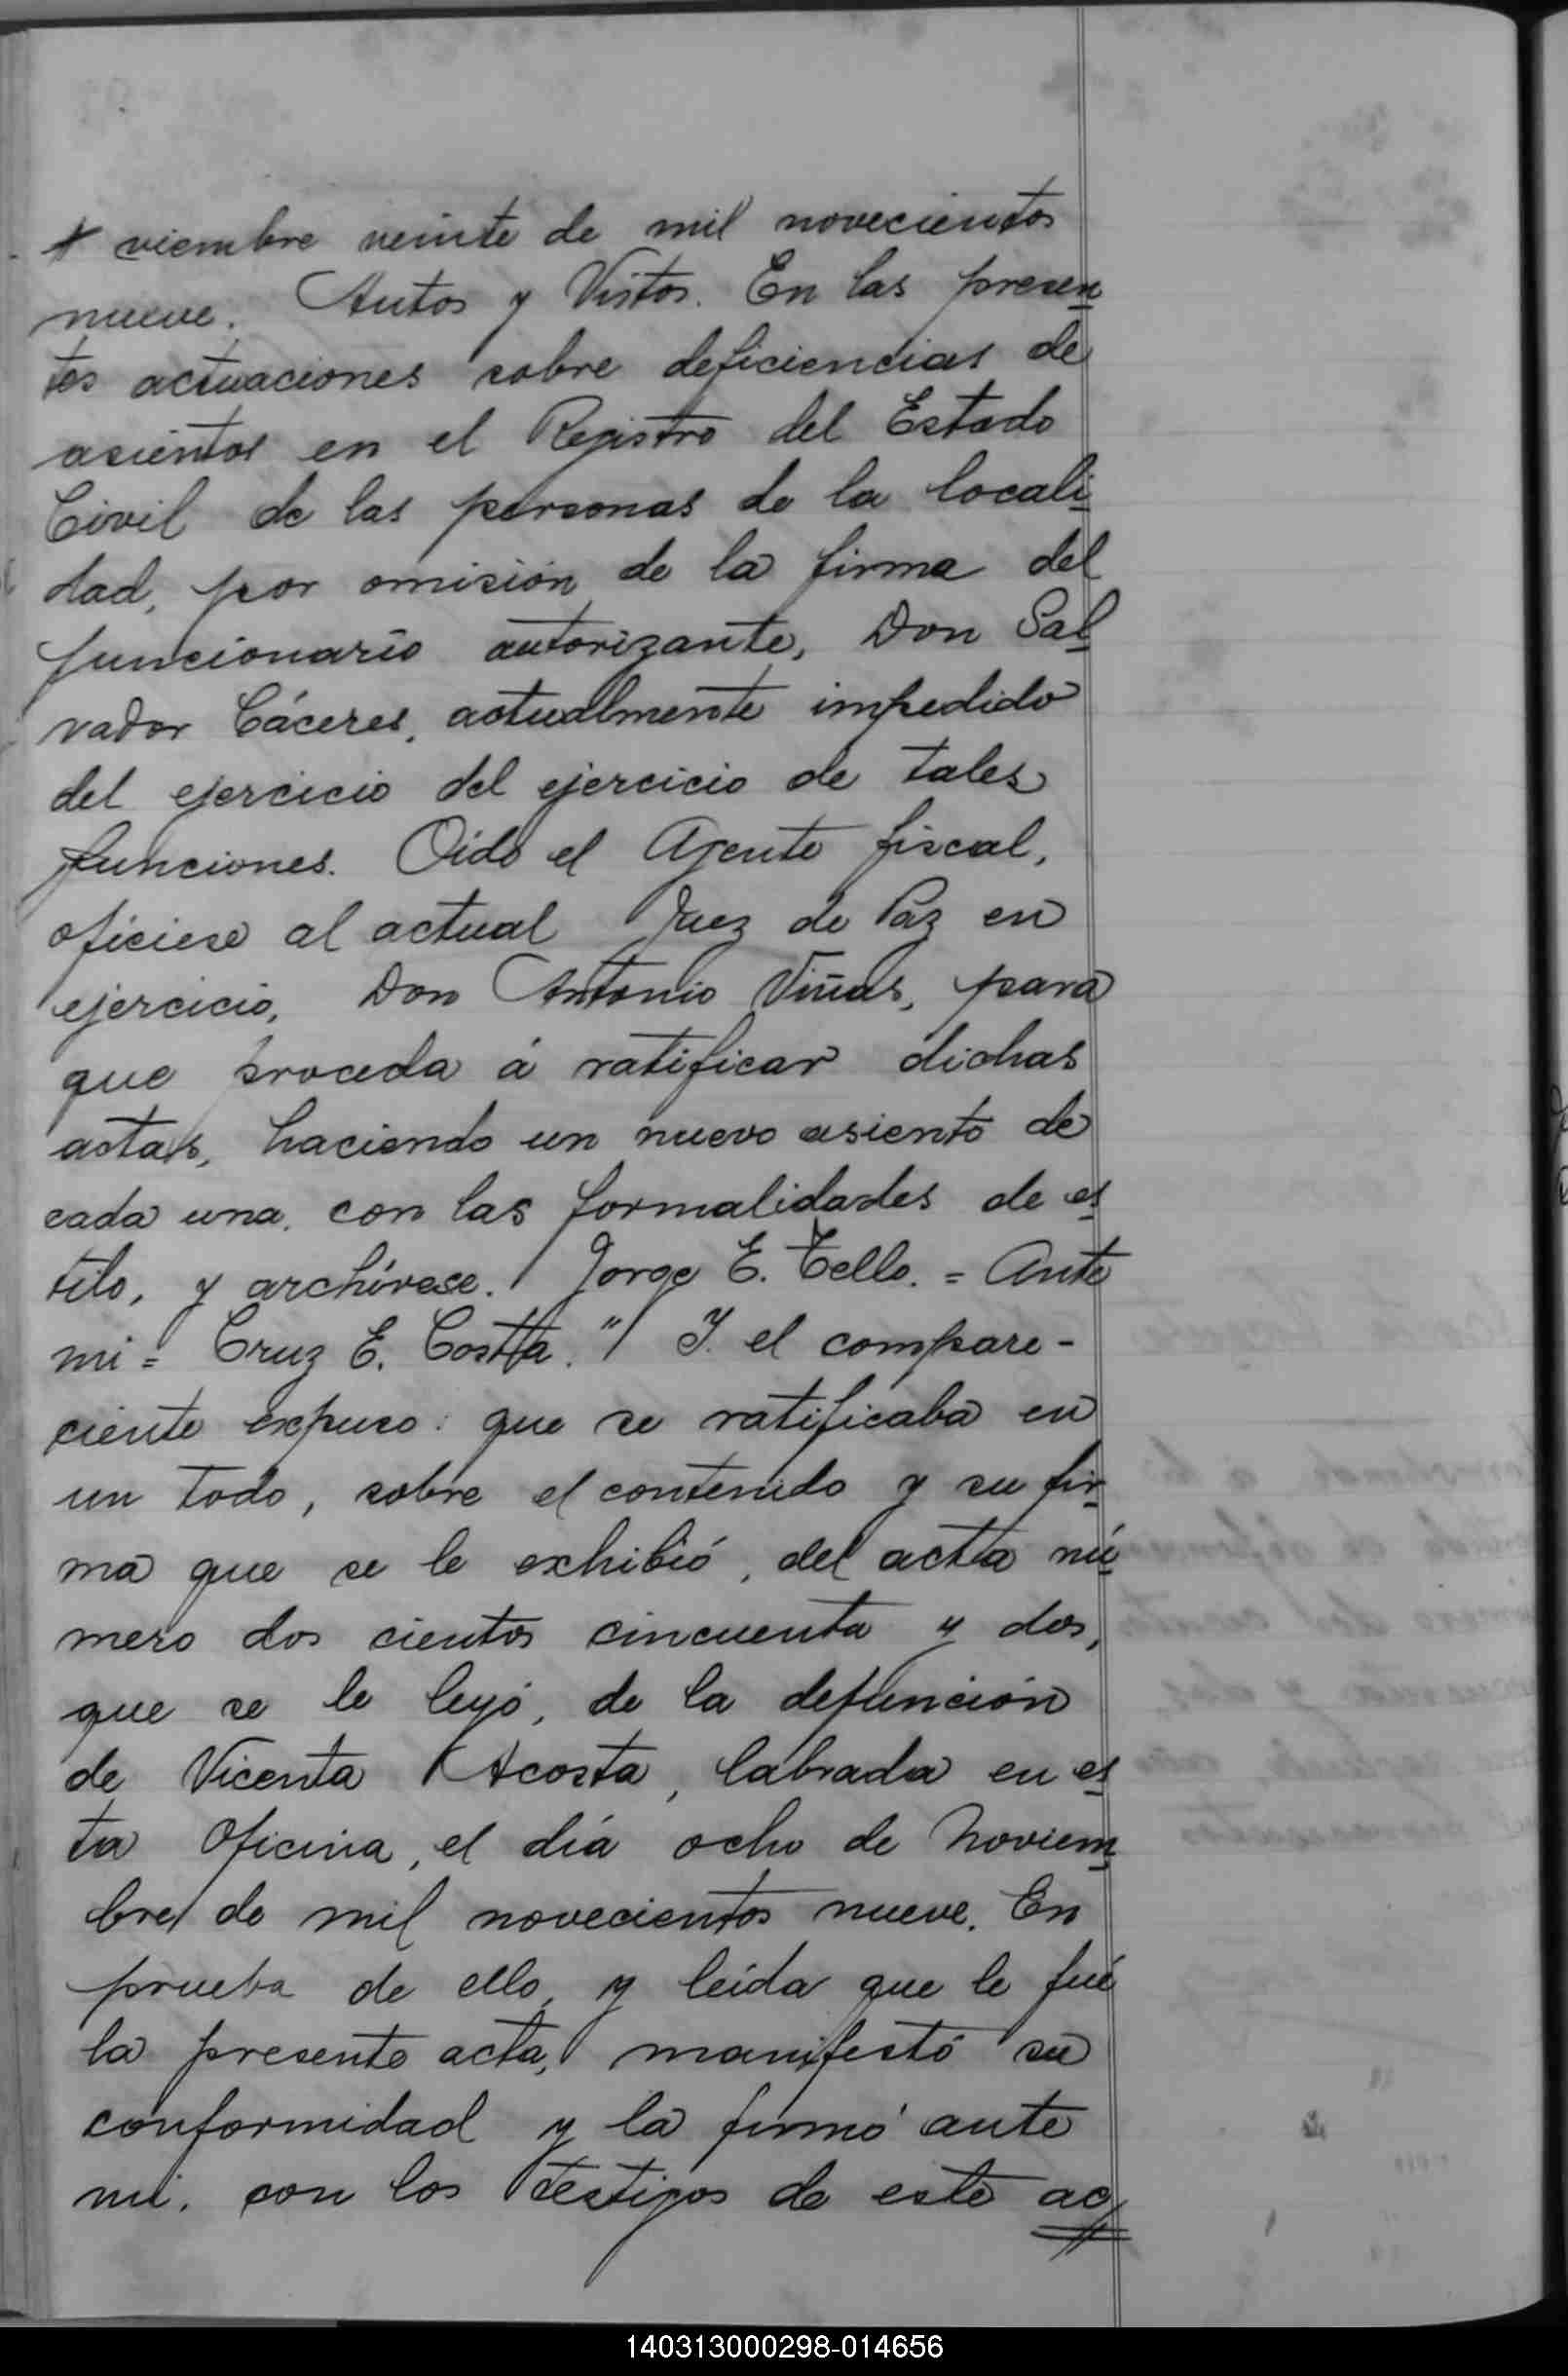 viembre veinte de mil novecientos
nueve. Autos y Vistos. En las presen
tes actuaciones sobre deficiencias de
asientos en el Registro del Estado
Civil de las personas de la locali
dad, por omisión de la firma del
funcionario autorizante, Don Sal
vador Cáceres, actualmente impedido
del ejercicio del ejercicio de tales
funciones. Oido el Agente fiscal,
oficiese al actual Juez de Paz en
ejercicio, Don Antonio Viñas, para
que proceda á ratificar dichas
actas, haciendo un nuevo asiento de
cada una, con las formalidades de es
tilo, y archívese. Jorge E. Tello. = Ante
mi = Cruz E. Costta." I. el compare-
ciente expuso: que se ratificaba en
un todo, sobre el contenido y su fir
ma que se le exhibió, del acta nú
mero dos cientos cincuenta y dos,
que se le leyó, de la defunción
de Vicenta Acosta, labrada en es
ta Oficina, el día ocho de Noviem
bre de mil novecientos nueve. En
prueba de ello, y leida que le fué
la presente acta, manifestó su
conformidad y la firmó ante
mi, con los testigos de este ac
140313000298-014656